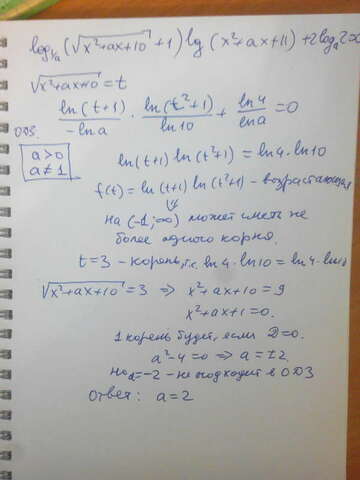 log_{1/a}(√(x²+ax+10) + 1) lg(x²+ax+11) + 2log_a 2 =
√(x²+ax+10) = t
ln(t+1)/(-ln a) · ln(t²+1)/ln10 + ln4/ln a = 0
ОДЗ.
a>0
a≠1
ln(t+1) ln(t²+1) = ln4·ln10
f(t) = ln(t+1) ln(t²+1) - возрастающая
⇓
на (-1;∞) может иметь не
более одного корня.
t=3 - корень, т.к. ln4·ln10 = ln4·ln10
√(x²+ax+10) = 3 ⇒ x²+ax+10 = 9
x²+ax+1=0.
1 корень будет, если D=0.
a²-4=0 ⇒ a=±2.
Но a=-2 - не подходит в ОДЗ
Ответ: a=2